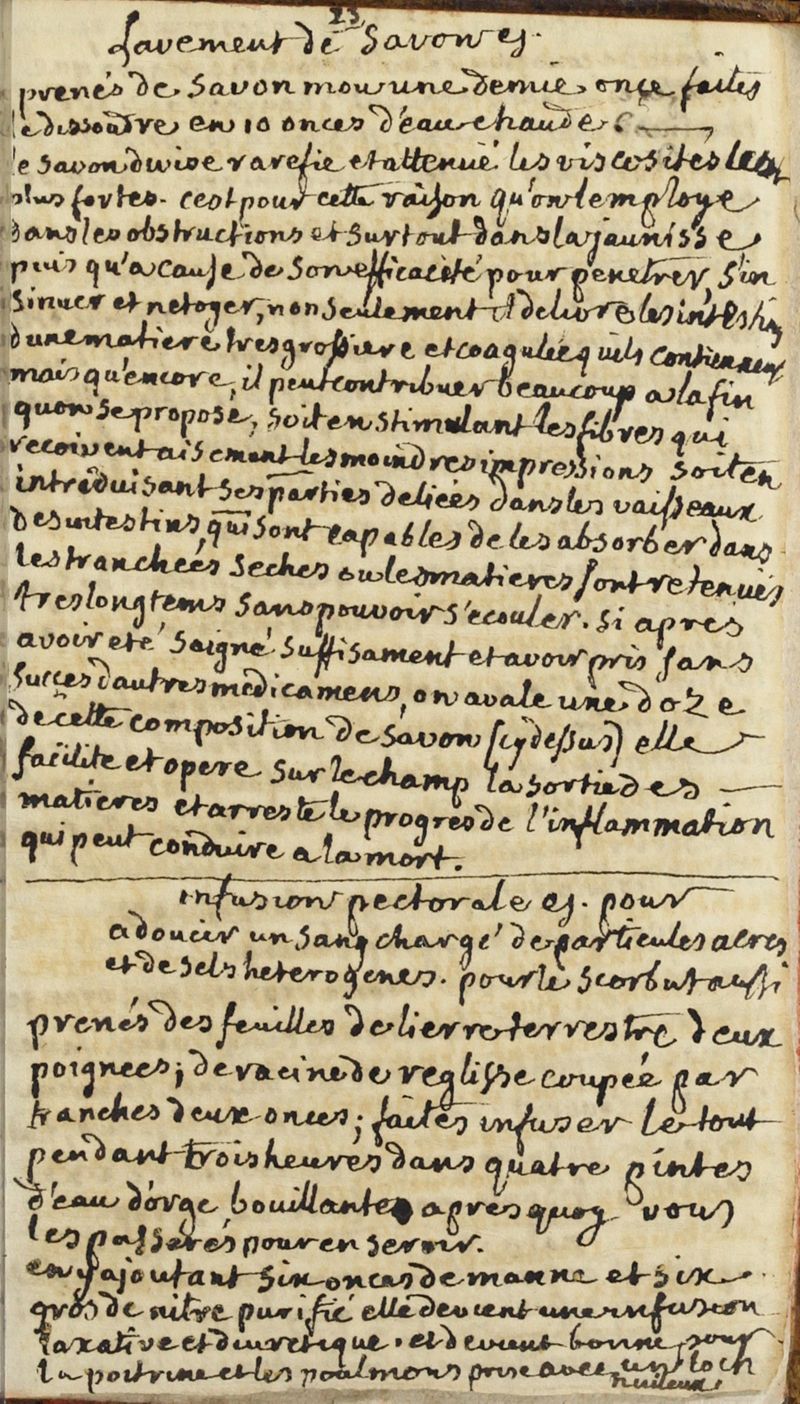 23
Lavement de Savon
prenés de Savon mou une demie once faites
le dissoudre en 10 onces d'eau chaude
le savon divise rarefie et attenue les viscosités les
plus fortes. cest pour cette raison qu'on lemploye
dans les obstructions et surtout dans la jaunisse
puis qu'a cause de son efficacité pour penetrer, s'in
sinuer et netoyer, non seulement il delivre les intestins
dune matiere tres grossiere et coagulée quils contiennent
mais qu'encore, il peut contribuer beaucoup a la fin
quon se propose, soit en stimulant les fibres qui
recoivent aisement les moindres impressions soit en
introduisant ses parties deliées dans les vaisseaux
des intestins, qui sont capables de les absorber dans
les tranchées seches ou les matieres sont retenües
tres longtems sans pouvoir s'ecouler. si apres
avoir eté saigné suffisament et avoir pris sans
succes dautres medicamens, on avale une doze
de cette composition de savon (cy dessus) elle
facilite et opere sur le champ la sortie des
matieres et arreste le progres de l'inflammation
qui peut conduire a la mort.
infusion pectorale pour
adoucir un sang chargé de particules acres
et de sels heterogenes. pour le scorbut aussi
prenés des feuilles de lierre terrestre deux
poignees; de racine de reglisse coupée par
tranches deux onces; faites infuser le tout
pendant trois heures dans quatre pintes
d'eau d'orge bouillante apres quoy vous
les passerés pour en servir.
en y ajoutant six onces de manne et six
gros de nitre purifié elle devient une infusion
laxative et diuretique. et devient bonne pour
la poitrine et les poulmons prise avec un loch
huileux